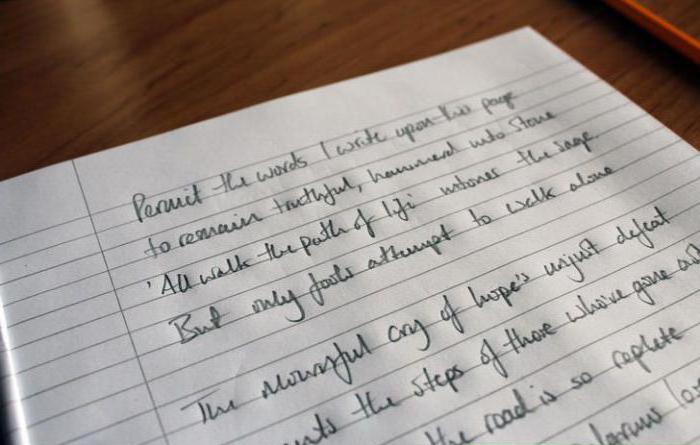 Permit the words I write upon this page
to remain truthful, hammered into stone
'All walk the path of life intones the sage.
But only fools attempt to walk alone
The mournful cry of hope's unjust defeat
the steps of those who've gone
the road is so replete